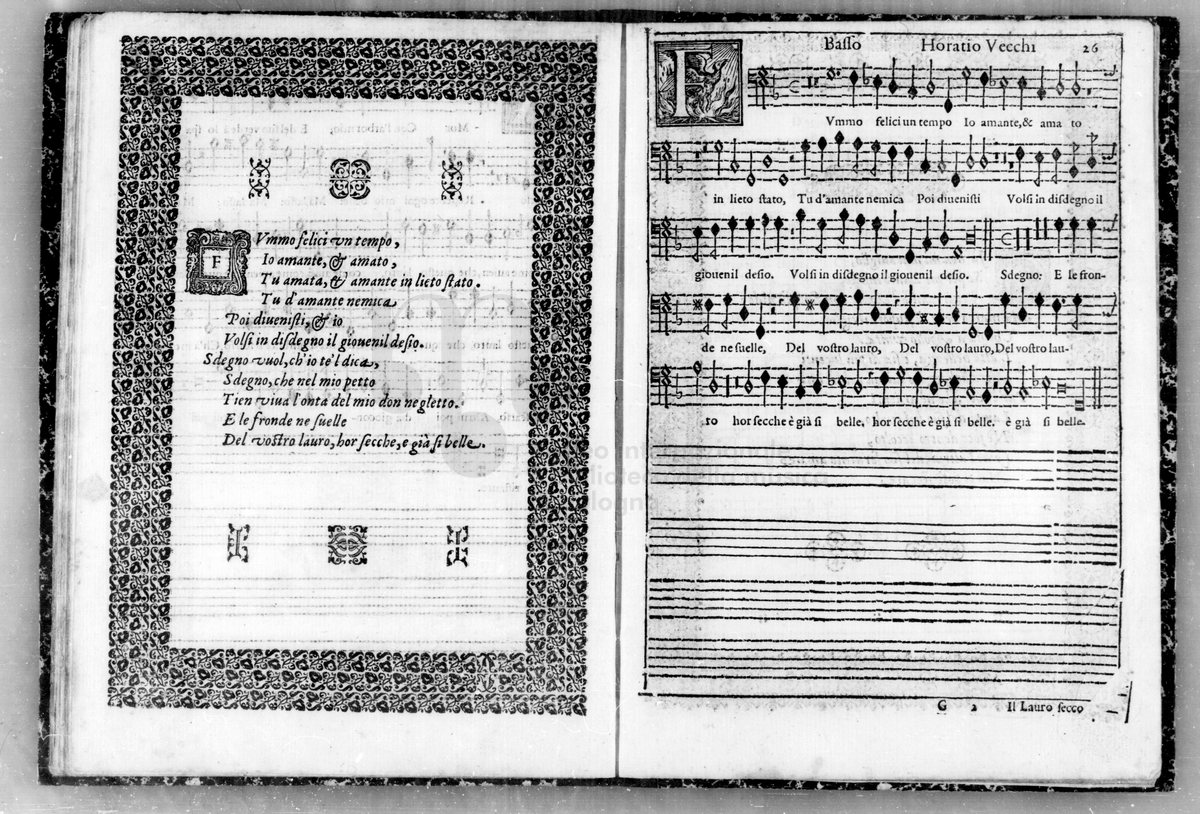 FVmmo felici vn tempo,
Io amante, & amato,
Tu amata, & amante in lieto stato.
Tu d'amante nemica
Poi diuenisti, & io
Volsi in disdegno il giouenil desio.
Sdegno vuol, ch'io te'l dica,
Sdegno, che nel mio petto
Tien viua l'onta del mio don negletto.
E le fronde ne suelle
Del vostro lauro, hor secche, e già si belle.
Basso Horatio Vecchi 26
FVmmo felici un tempo Io amante, & ama to
in lieto stato, Tu d'amante nemica Poi diuenisti Volsi in disdegno il
giouenil desio. Volsi in disdegno il giouenil desio. Sdegno: E le fron-
de ne suelle, Del vostro lauro, Del vostro lauro, Del vostro lau-
ro hor secche è già si belle, hor secche è già si belle. è già si belle.
G 2 Il Lauro secco